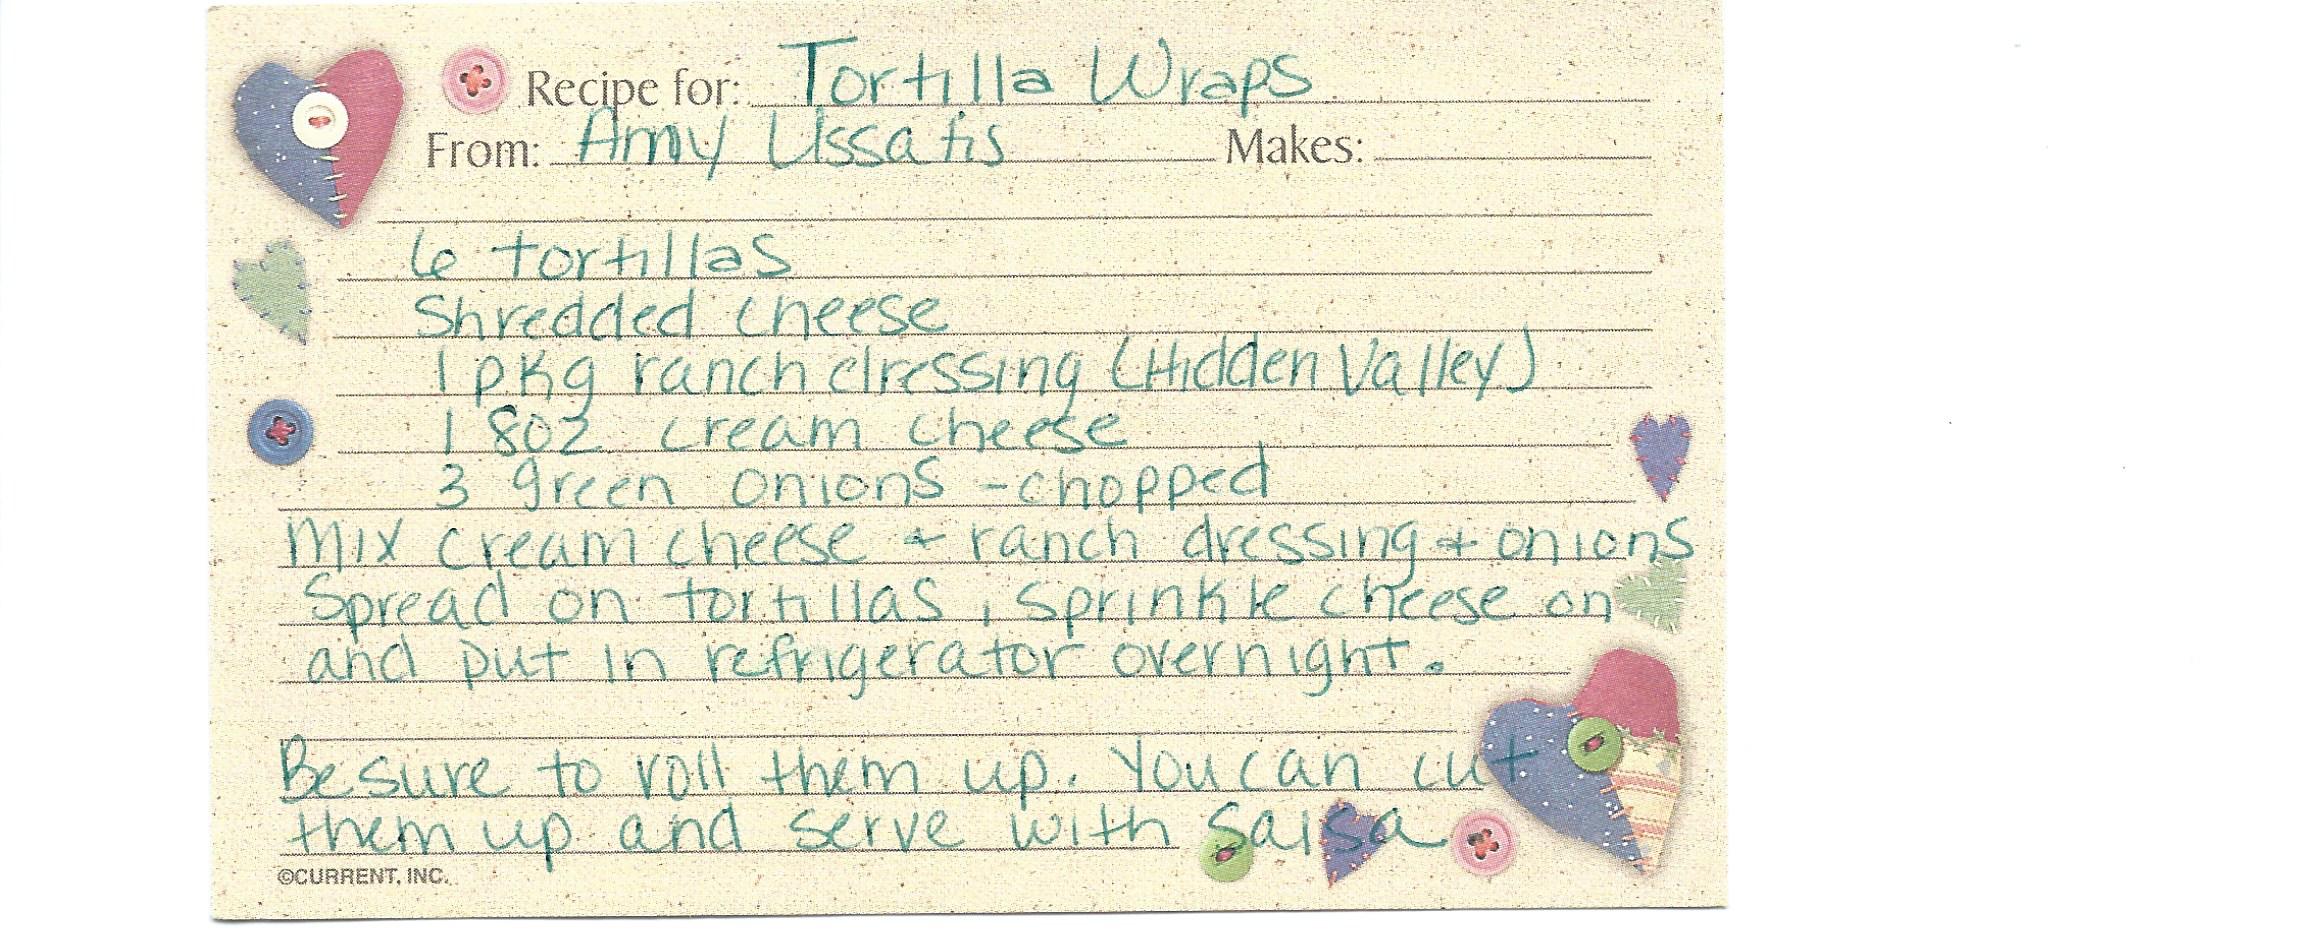 Recipe for: Tortilla Wraps
From: Amy Ussatis Makes:
6 tortillas
Shredded cheese
1 pkg ranch dressing (Hidden Valley)
1 8oz cream cheese
3 green onions - chopped
Mix cream cheese + ranch dressing + onions
Spread on tortillas, sprinkle cheese on
and put in refrigerator overnight.
Be sure to roll them up. You can cut
them up and serve with salsa
©CURRENT, INC.